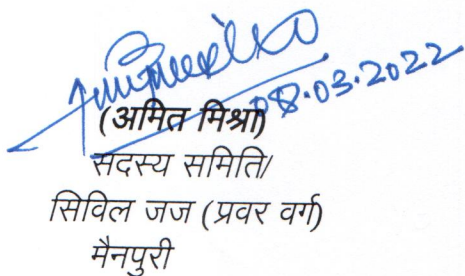 08.03.2022
(अमित मिश्रा)
सदस्य समिति/
सिविल जज (प्रवर वर्ग)
मैनपुरी